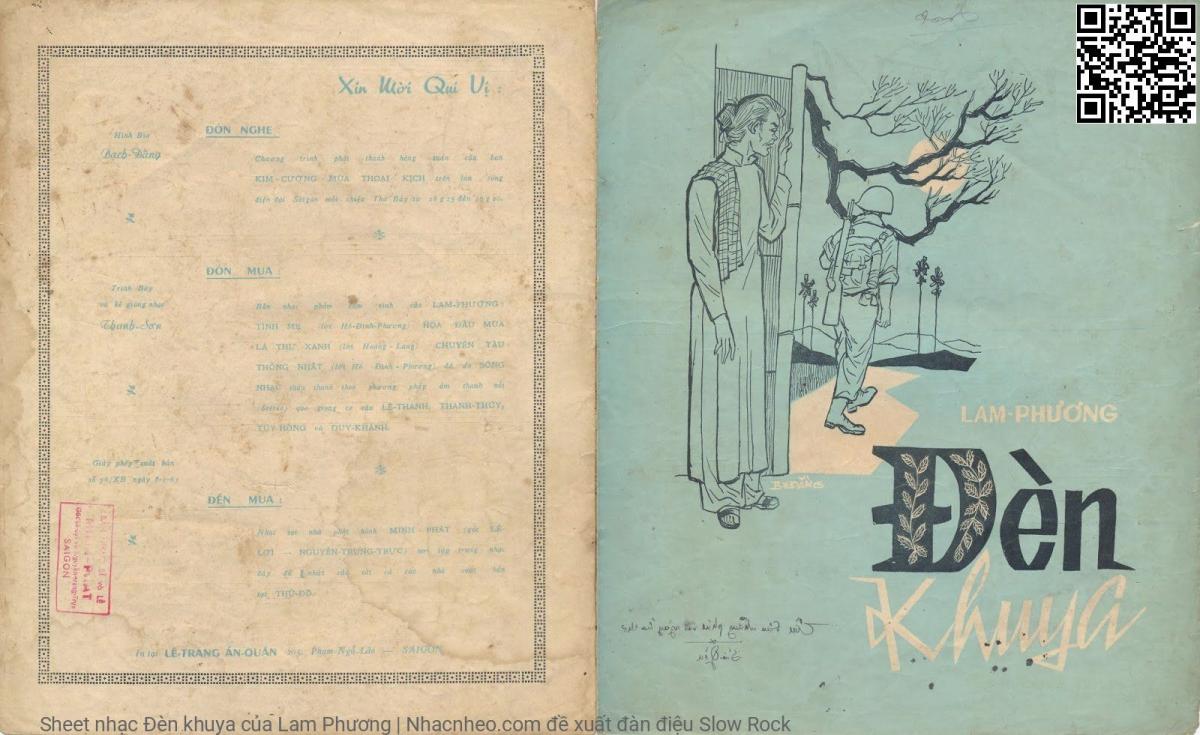 Xin Mời Quí Vị :
Hình Bìa
Bạch-Đằng
ĐÓN NGHE :
Chương trình phát thanh hàng tuần của ban
KIM-CƯƠNG MÚA THOẠI KỊCH trên làn sóng
điện đài Sàigon mỗi chiều Thứ Bảy từ
ĐÓN MUA :
Trình Bày
và kẻ giòng nhạc
Thanh-Sơn
Bản nhạc phẩm của LAM-PHƯƠNG :
TÌNH MẸ (lời Hồ-Đình-Phương) HOA ĐẦU MÙA
LÁ THƯ XANH (lời Hoàng-Lang) CHUYẾN TÀU
THỐNG NHẤT (lời Hồ Đình-Phương) đã do SÓNG
NHẠC thâu thanh theo phương pháp âm thanh nổi
qua giọng ca của LỆ-THANH, THANH-THÚY,
TÚY-HỒNG và DUY-KHÁNH.
Giấy phép xuất bản
ĐẾN MUA :
Nhạc tại nhà phát hành MINH-PHÁT (góc LÊ-
LỢI — NGUYỄN-TRUNG-TRỰC) nơi tập trung nhạc
đầy đủ nhất của tất cả các nhà xuất bản
tại THỦ-ĐÔ.
SAIGON
In tại LÊ-TRANG ẤN-QUÁN Phạm-Ngũ-Lão — SAIGON
B.ĐẰNG
LAM-PHƯƠNG
Đèn
Khuya
Sheet nhạc Đèn khuya của Lam Phương | Nhacnheo.com đề xuất đàn điệu Slow Rock